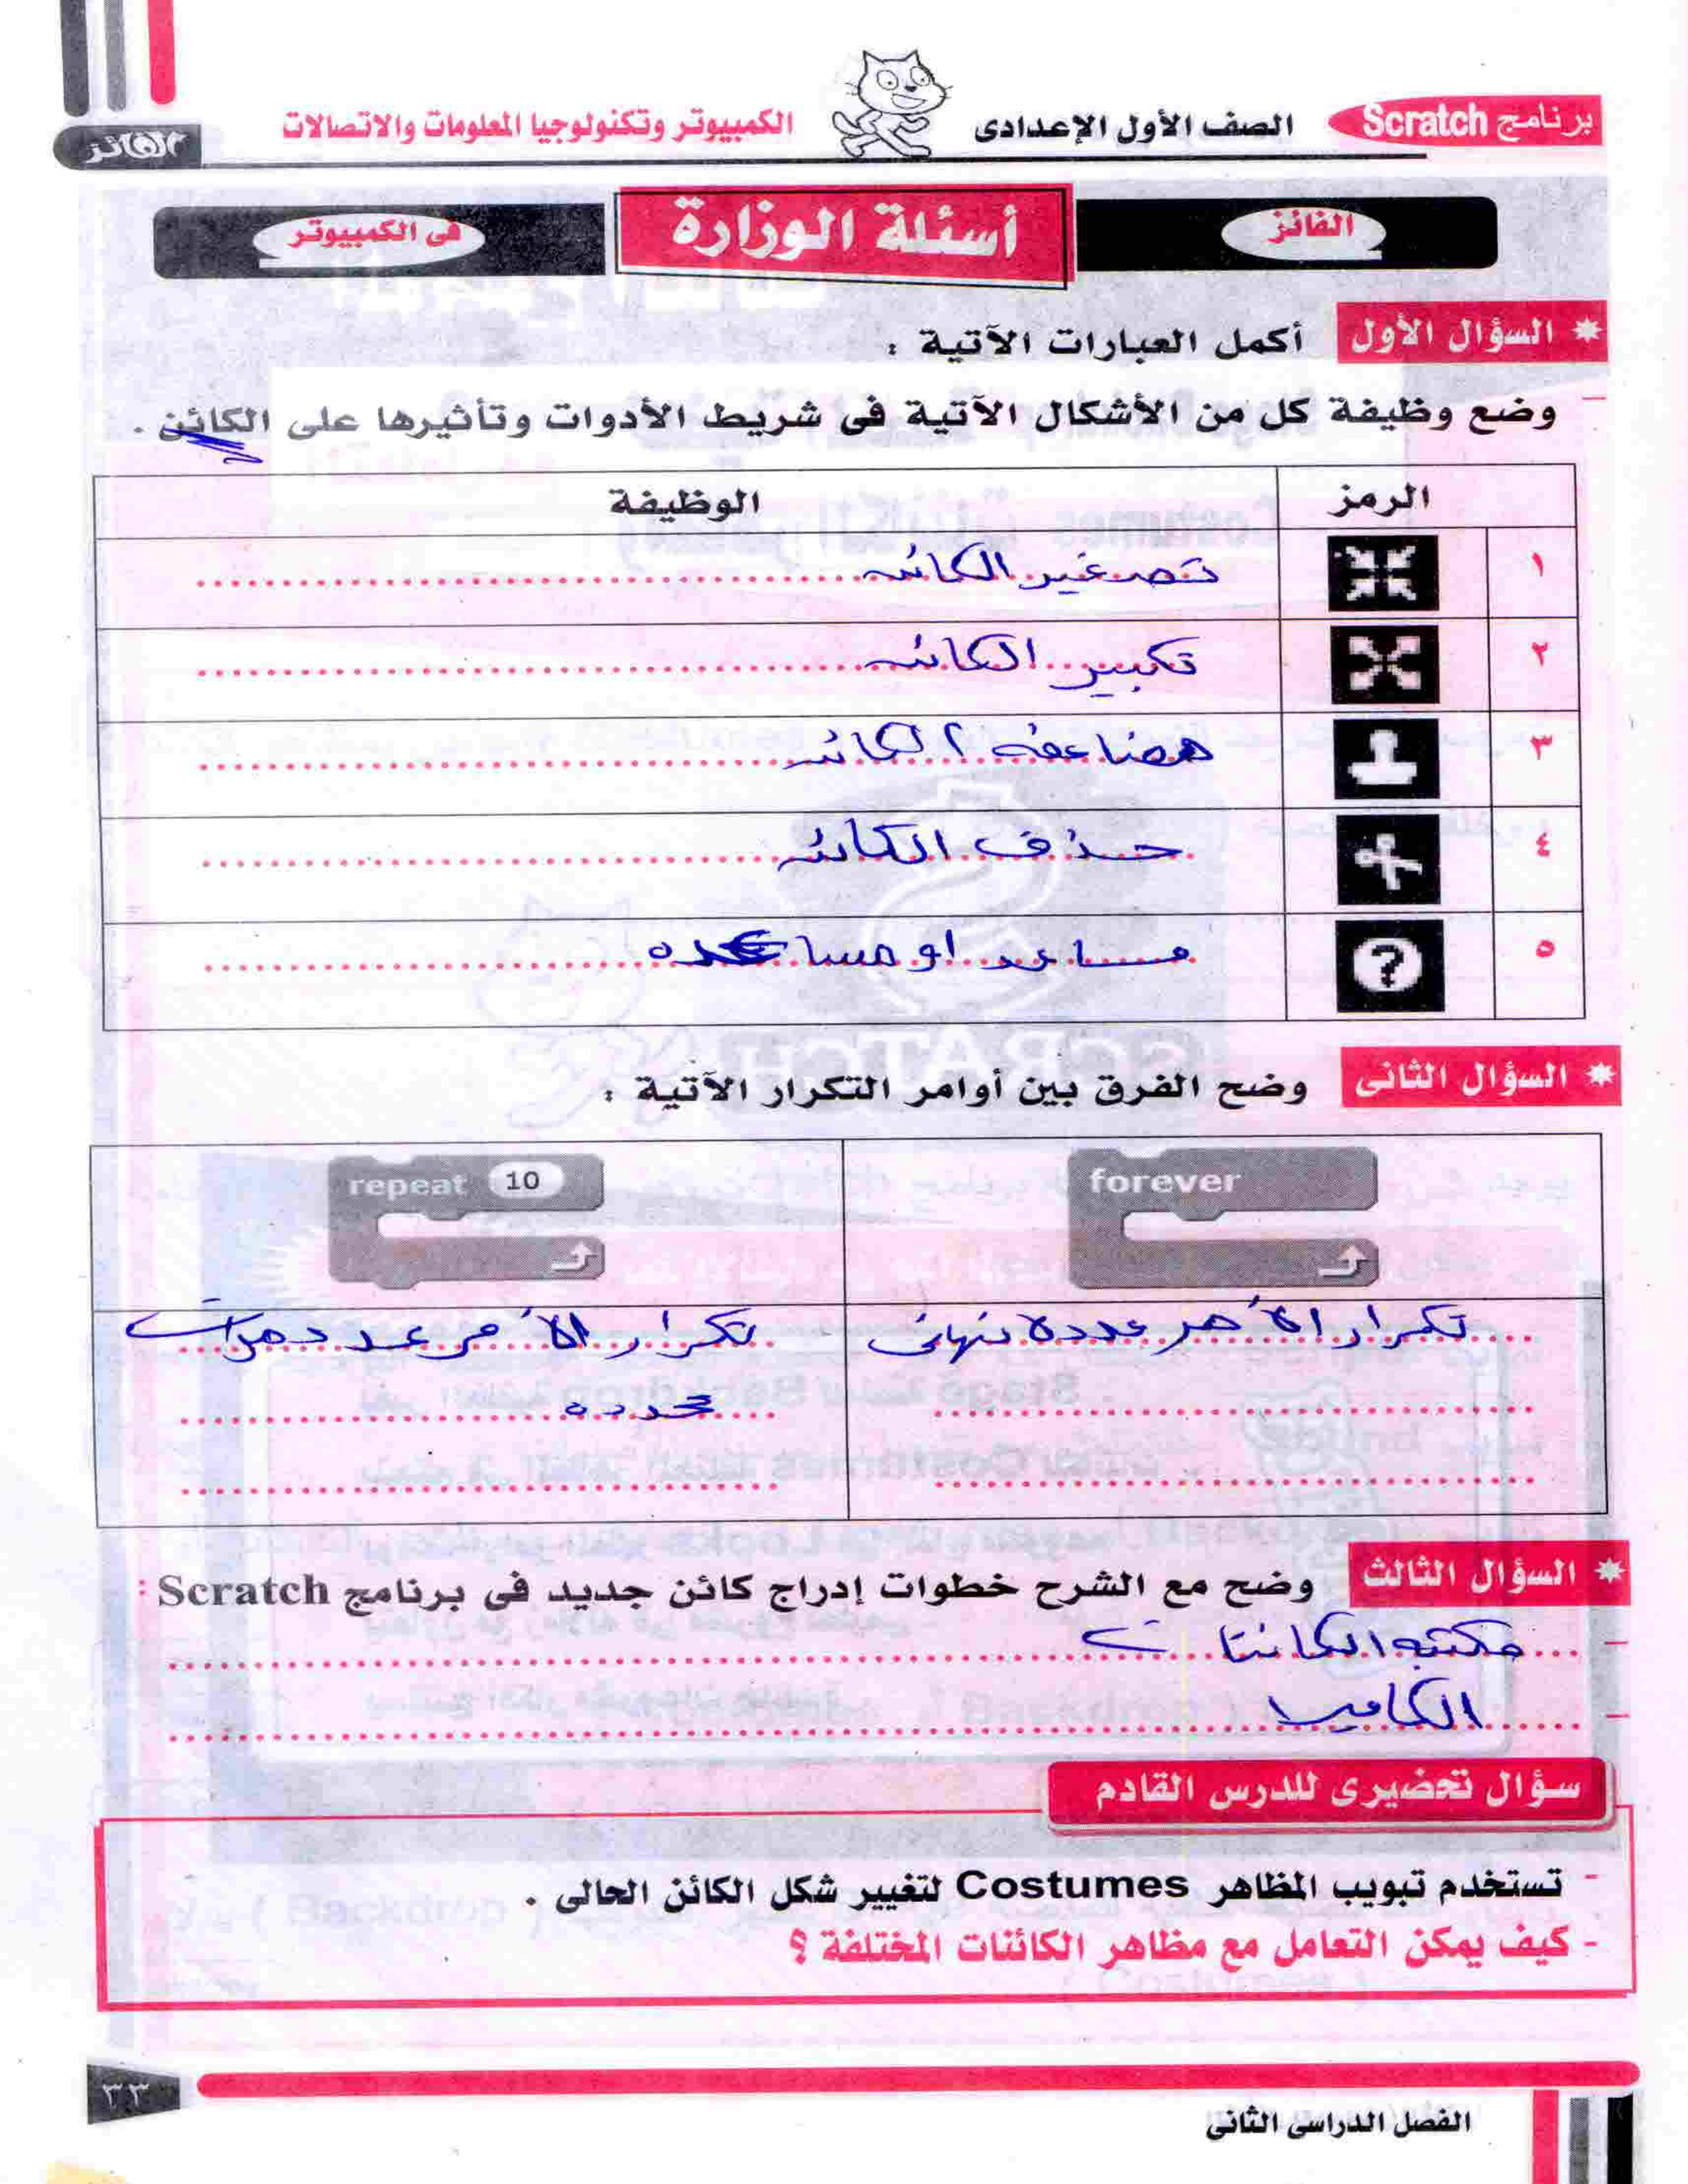 برنامج Scratch
الصف الأول الإعدادى
الكمبيوتر وتكنولوجيا المعلومات والاتصالات
الفائز
الفائز
أسئلة الوزارة
فى الكمبيوتر
السؤال الأول أكمل العبارات الآتية :
- وضع وظيفة كل من الأشكال الآتية فى شريط الأدوات وتأثيرها على الكائن .
الرمز الوظيفة
١ تصغير الكائن
٢ تكبير الكائن
٣ مضاعفه الكائن
٤ حذف الكائن
٥ ? مساعد او مساعده
السؤال الثانى وضح الفرق بين أوامر التكرار الآتية :
forever repeat 10
تكرار الأمر عدد لا نهائى
تكرار الأمر عدد مرات
محدده
السؤال الثالث وضح مع الشرح خطوات إدراج كائن جديد فى برنامج Scratch :
- مكتبه الكائنات
- الكاميرا
سؤال تحضيرى للدرس القادم
- تستخدم تبويب المظاهر Costumes لتغيير شكل الكائن الحالى .
- كيف يمكن التعامل مع مظاهر الكائنات المختلفة ؟
٣٣
الفصل الدراسى الثانى